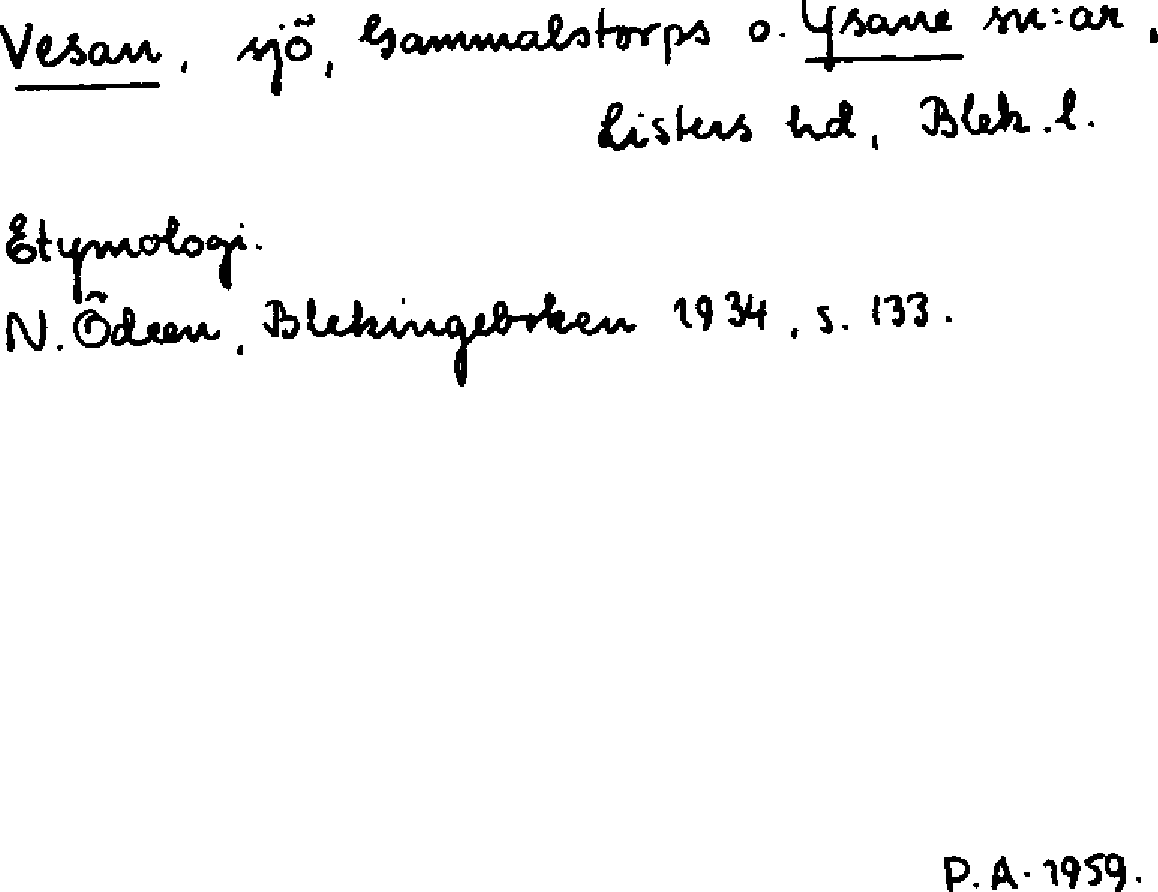 Vesan, sjö, Gammalstorps o. Ysane sn:ar,
Listers hd, Blek. l.
Etymologi.
N. Ödeen, Blekingeboken 1934, s. 133.
P.A. 1959.